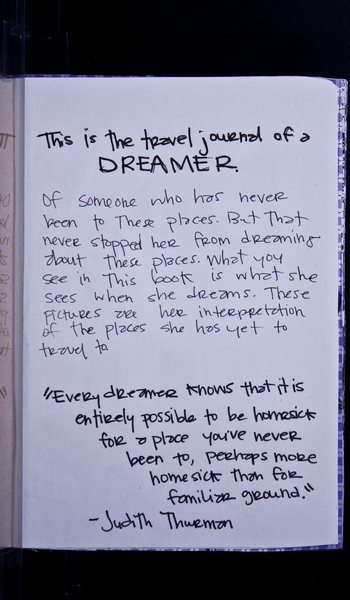 This is the travel journal of a
DREAMER.
Of someone who has never
been to These places. But That
never stopped her from dreaming
about these places. What you
see in This book is what she
sees when she dreams. These
pictures are her interpretation
of the places she has yet to
travel to
"Every dreamer knows that it is
entirely possible to be homesick
for a place you've never
been to, perhaps more
homesick than for
familiar ground."
-Judith Thurman